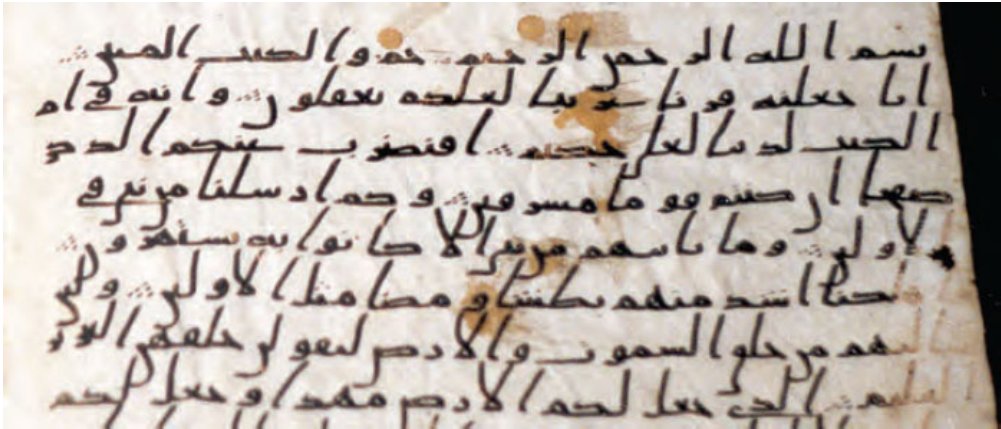 بسم الله الرحمن الرحيم حم والكتب المبين
انا جعلنه قرنا عربيا لعلكم تعقلون وانه في ام
الكتب لدينا لعلي حكيم افنضرب عنكم الذكر
صفحا ان كنتم قوما مسرفين وكم ارسلنا من نبي في
الاولين وما ياتيهم من نبي الا كانوا به يستهزون
كنا اشد منهم بطشا ومضا مثل الاولين ولين
لتهم من خلق السموت والارض ليقولن خلقهن العزيز
العليم الذي جعل لكم الارض مهدا وجعل لكم